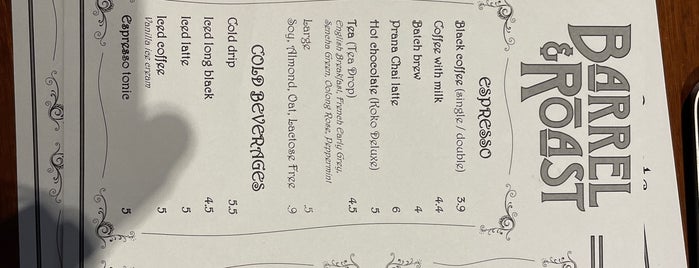 BARREL
& ROAST
ESPRESSO
Black coffee (single / double) 3.9
Coffee with milk 4.4
Batch brew 4
Prana Chai latte 6
Hot chocolate (Koko Deluxe) 5
Tea (Tea Drop) 4.5
English Breakfast, French Early Grey,
Sencha Green, Oolong Rose, Peppermint
Large .5
Soy, Almond, Oat, Lactose Free .9
COLD BEVERAGES
Cold drip 5.5
Iced long black 4.5
Iced latte 5
Iced coffee 5
Vanilla ice cream
Espresso tonic 5